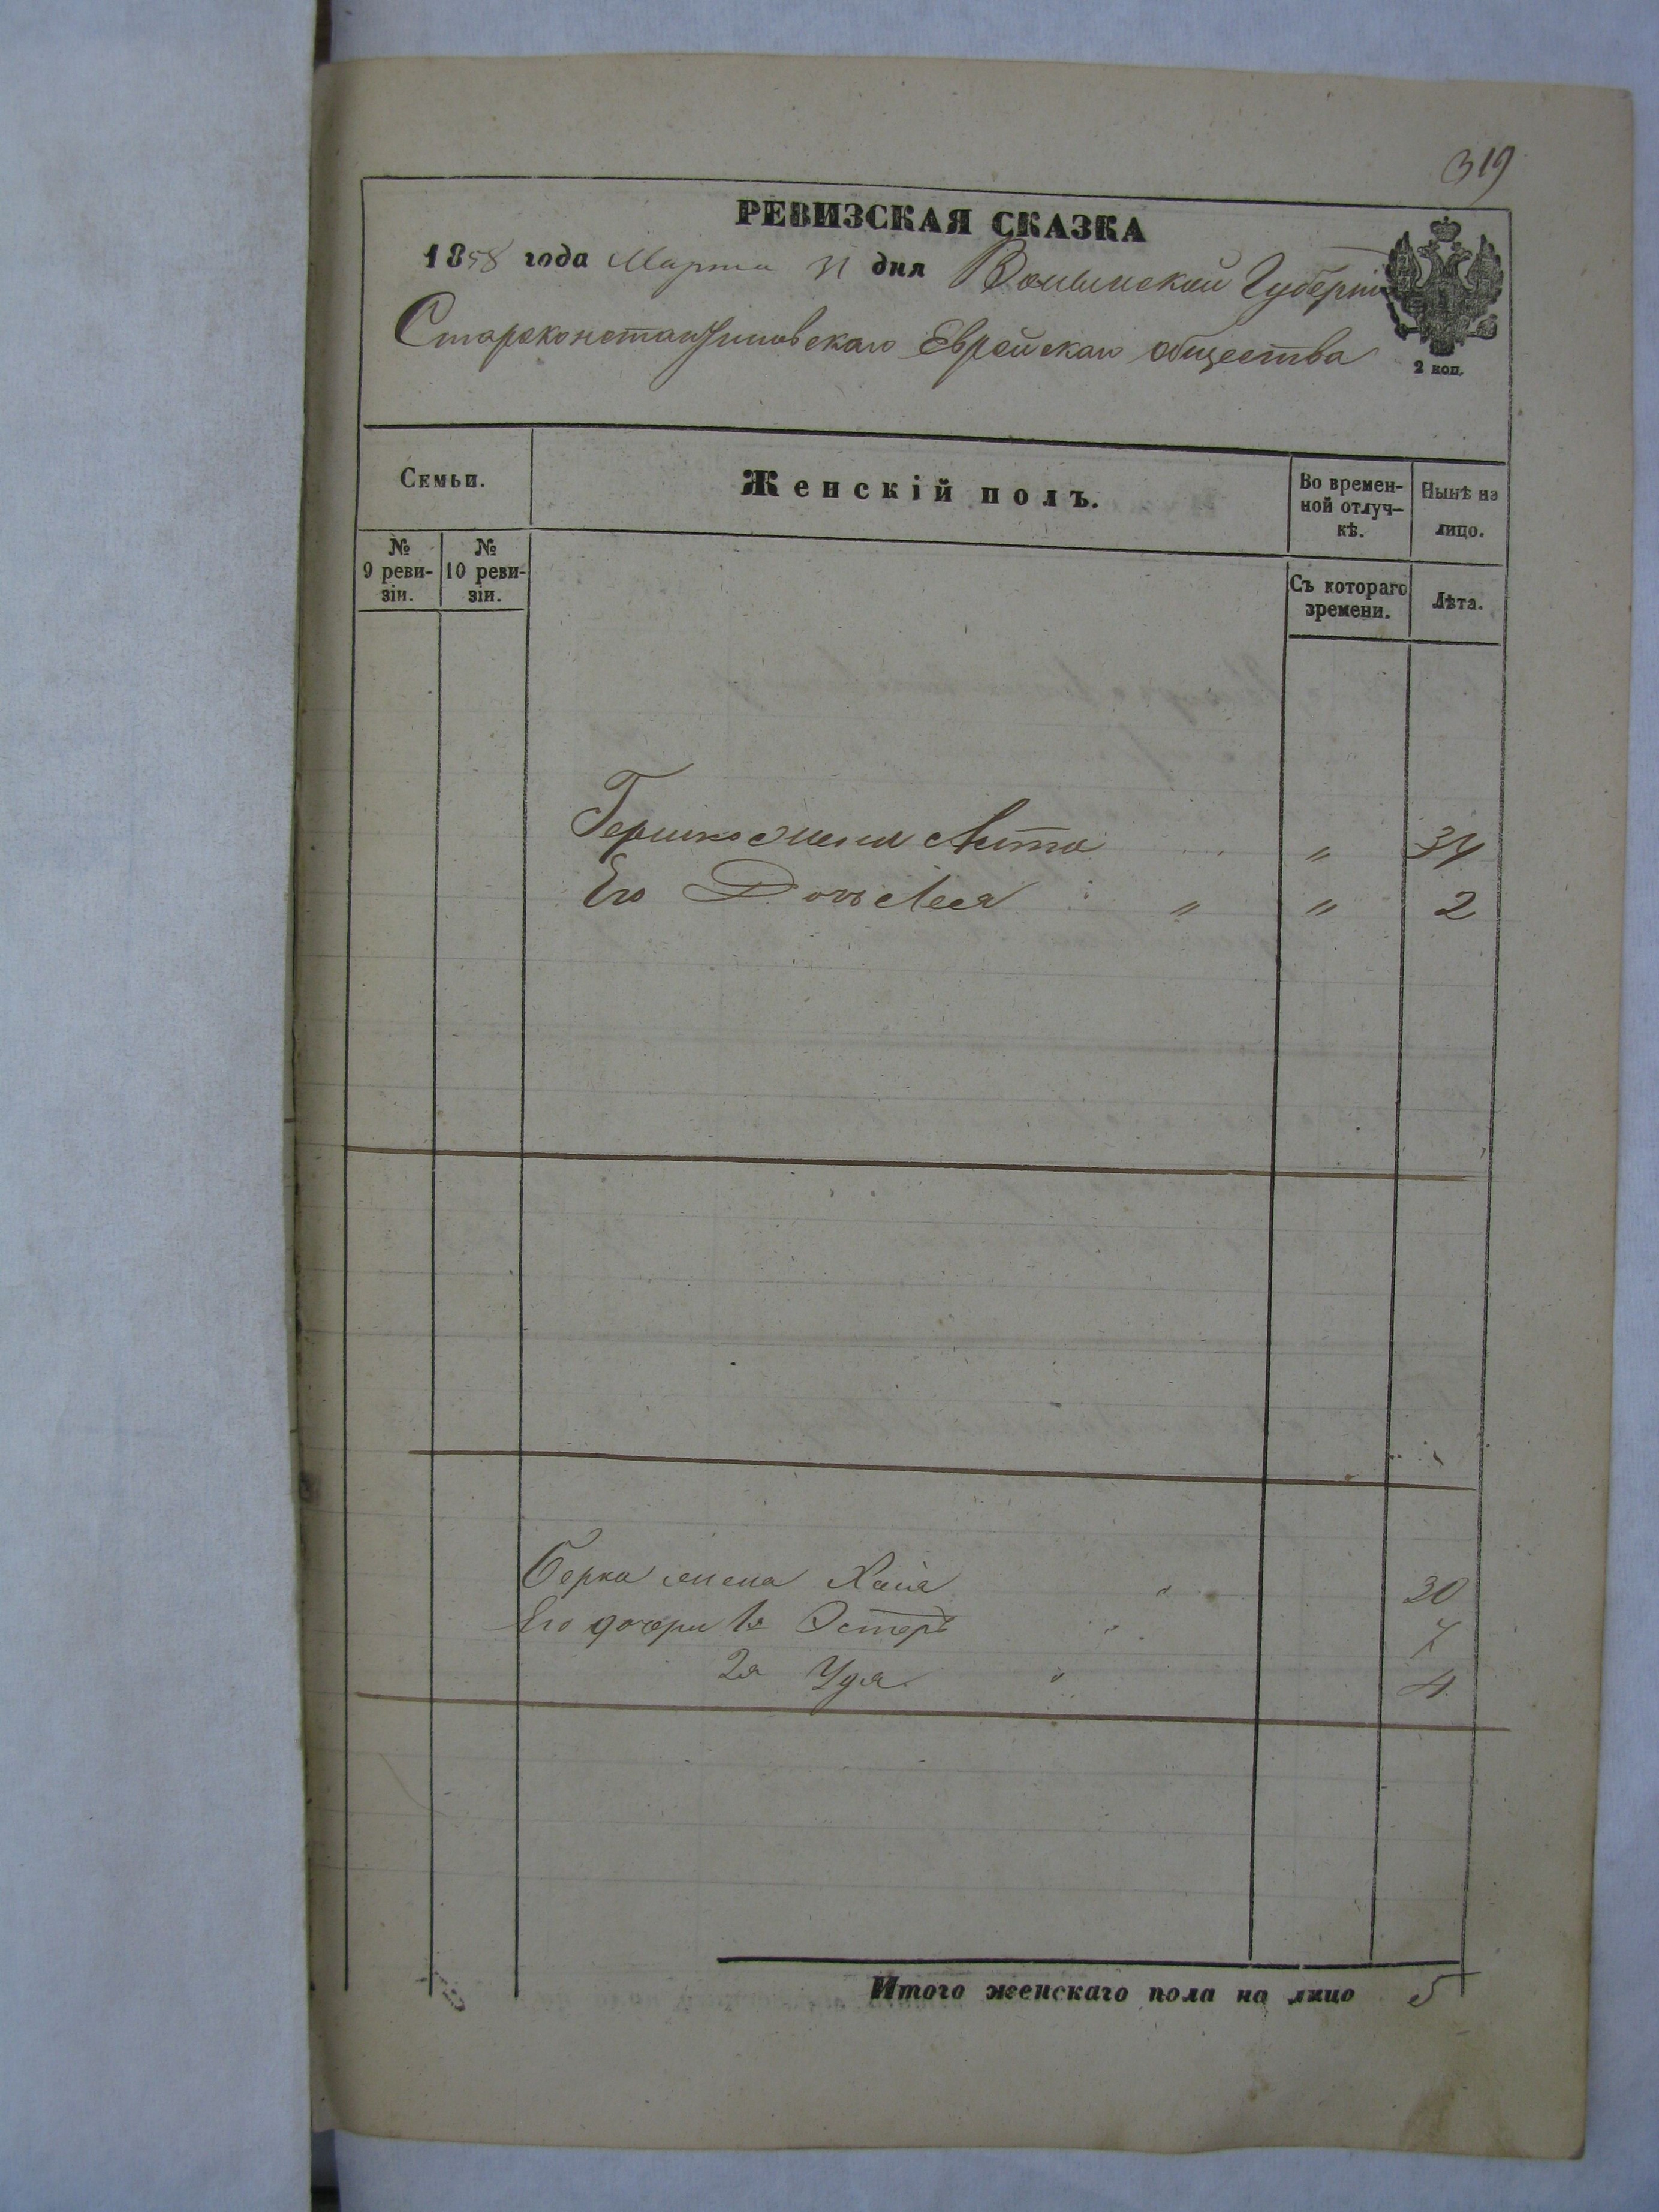 319
РЕВИЗСКАЯ СКАЗКА
1858 года Марта 31 дня Волынской Губерніи
Староконстантиновскаго Еврейскаго общества
2 коп.
Семьи.
Женскій полъ.
Во времен-
ной отлуч-
кѣ.
Нынѣ на
лицо.
№
9 реви-
зіи.
№
10 реви-
зіи.
Съ котораго
времени.
Лѣта.
Гершко жена " 34
Его Дочь Лея " " 2
Берка жена Хая " 30
Его дочери 1я Эстеръ " 7
2я Удя " 4
Итого женскаго пола на лицо 5